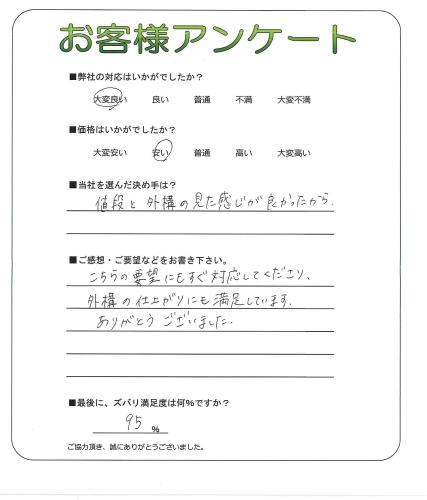 お客様アンケート
■弊社の対応はいかがでしたか？
大変良い 良い 普通 不満 大変不満
■価格はいかがでしたか？
大変安い 安い 普通 高い 大変高い
■当社を選んだ決め手は？
値段と外構の見た感じが良かったから.
■ご感想・ご要望などをお書き下さい。
こちらの要望にもすぐ対応してくださり、
外構の仕上がりにも満足しています.
ありがとうございました.
■最後に、ズバリ満足度は何%ですか？
95 %
ご協力頂き、誠にありがとうございました。